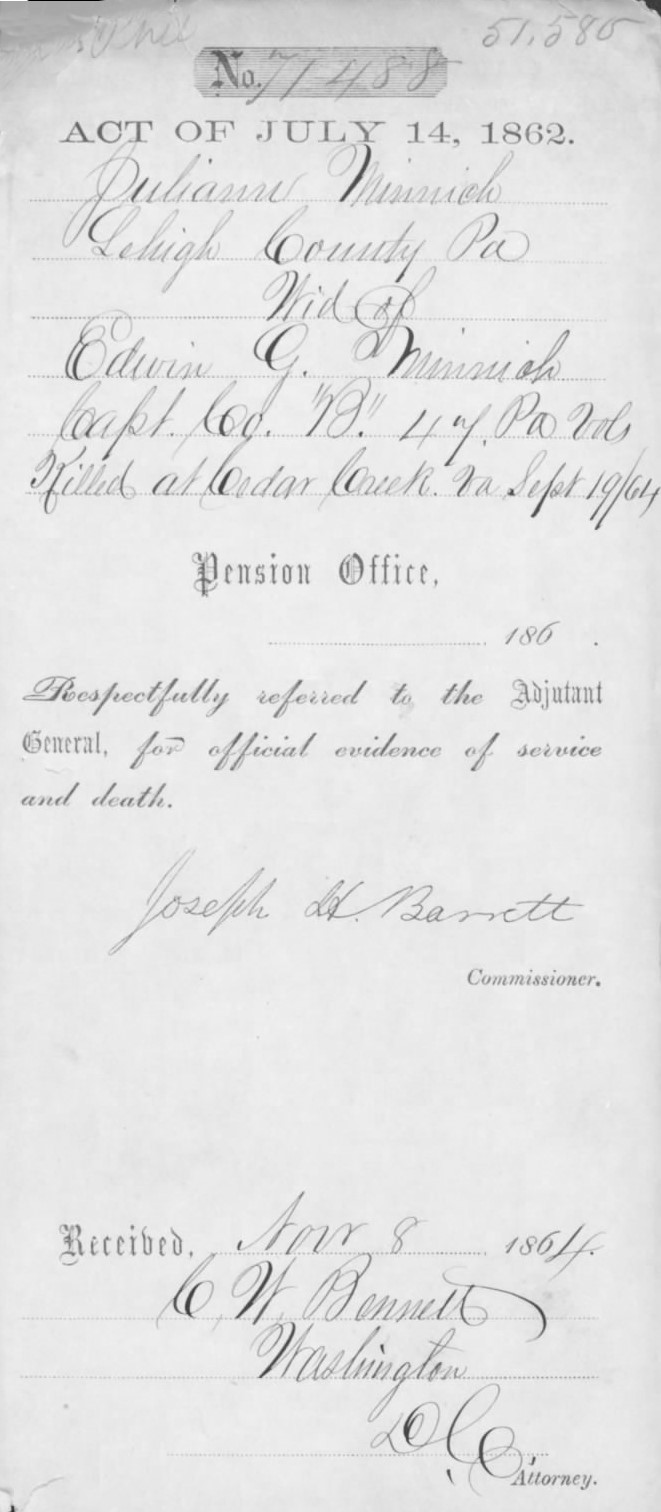 51.586
No. 71488
ACT OF JULY 14, 1862.
Juliann Minnich
Lehigh County Pa
Wid of
Edwin G. Minnich
Capt. Co. "B." 47. Pa Vols
Killed at Cedar Creek. Va Sept 19/64
Pension Office,
186 .
Respectfully referred to the Adjutant
General, for official evidence of service
and death.
Joseph H. Barrett
Commissioner.
Received, Nov 8 1864.
C. W. Bennett
Washington
D.C.
Attorney.